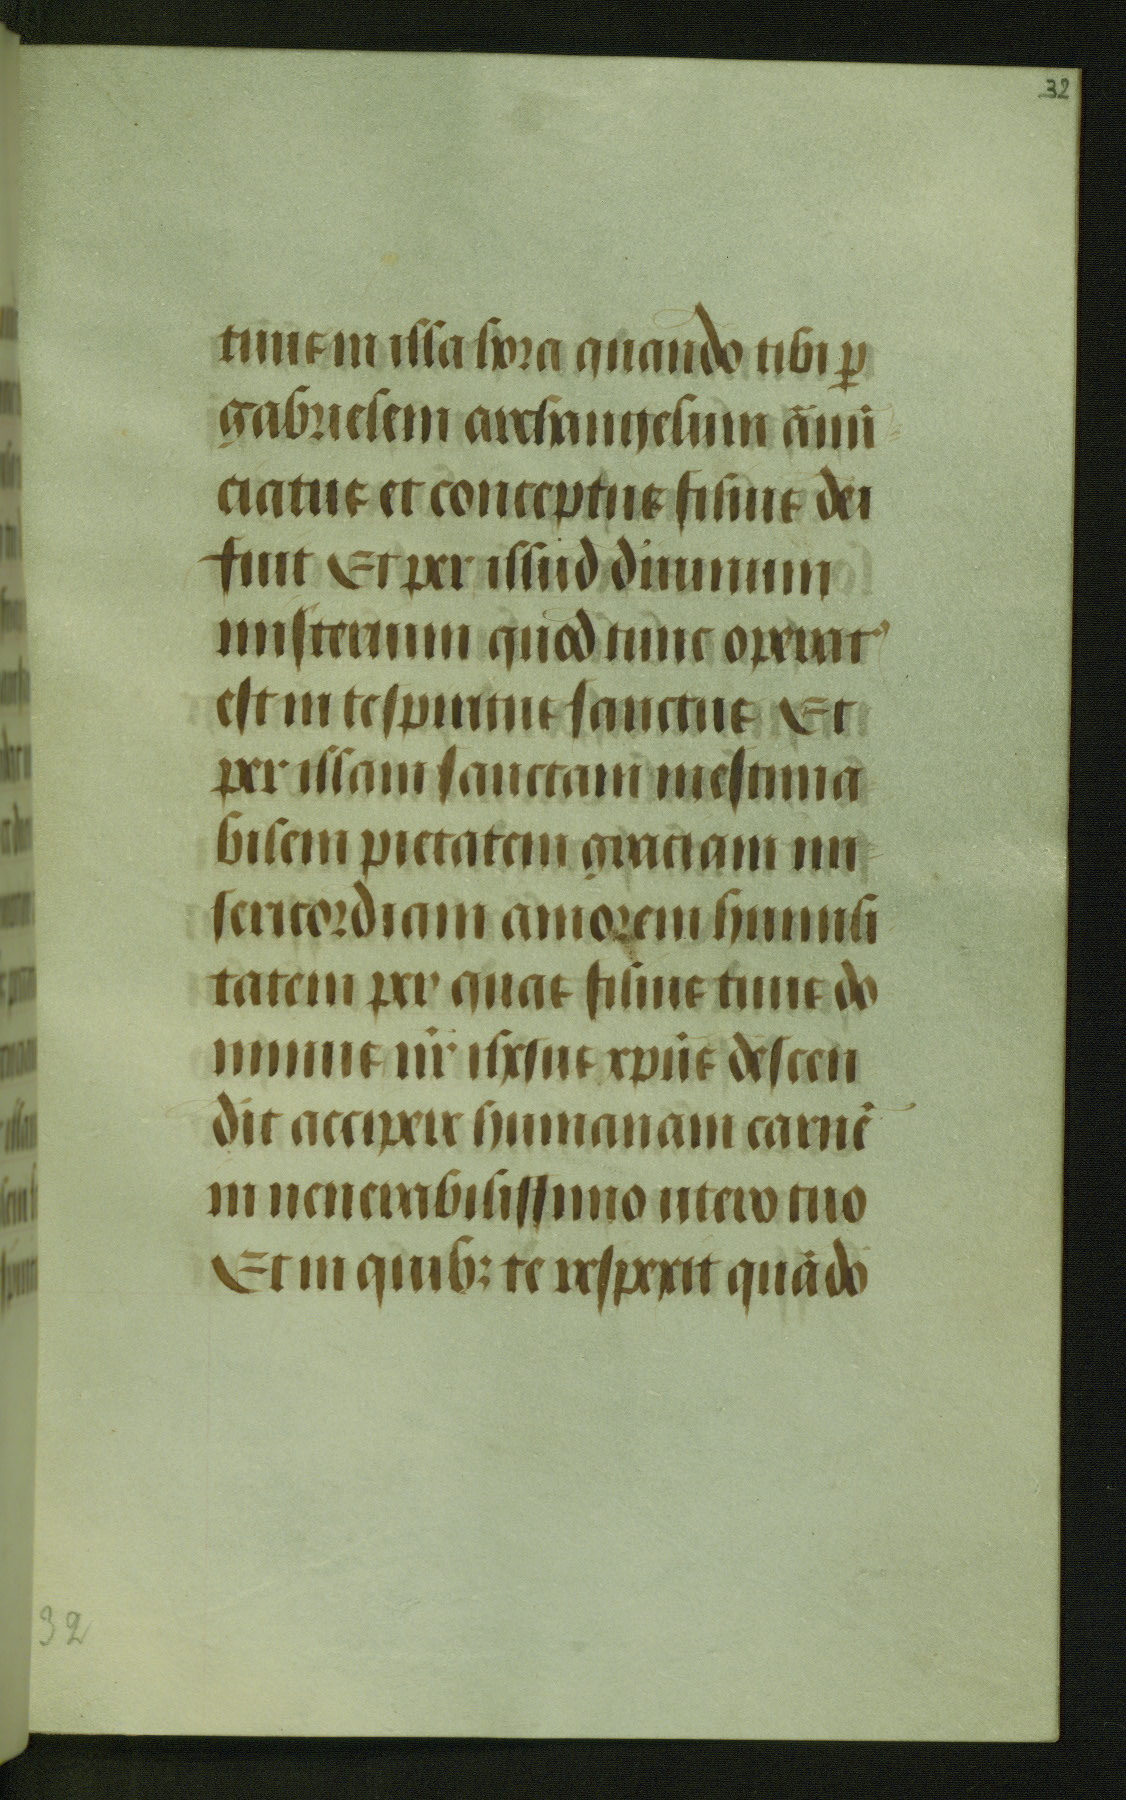 32
tuus in illa hora quando tibi ꝑ
gabrielem archangelum ānū-
ciatus et conceptus filius dei
fuit Et per illud diuinum
misterium quod tunc operat᷒
est in te spiritus sanctus Et
per illam sanctam inestima
bilem pietatem graciam mi-
sericordiam amorem humili
tatem per quas filius tuus do
minus nr̄ ihesus xpūs descen
dit accipere humanam carnē
in uenerabilissimo utero tuo
Et in quibꝫ te respexit quādo
32